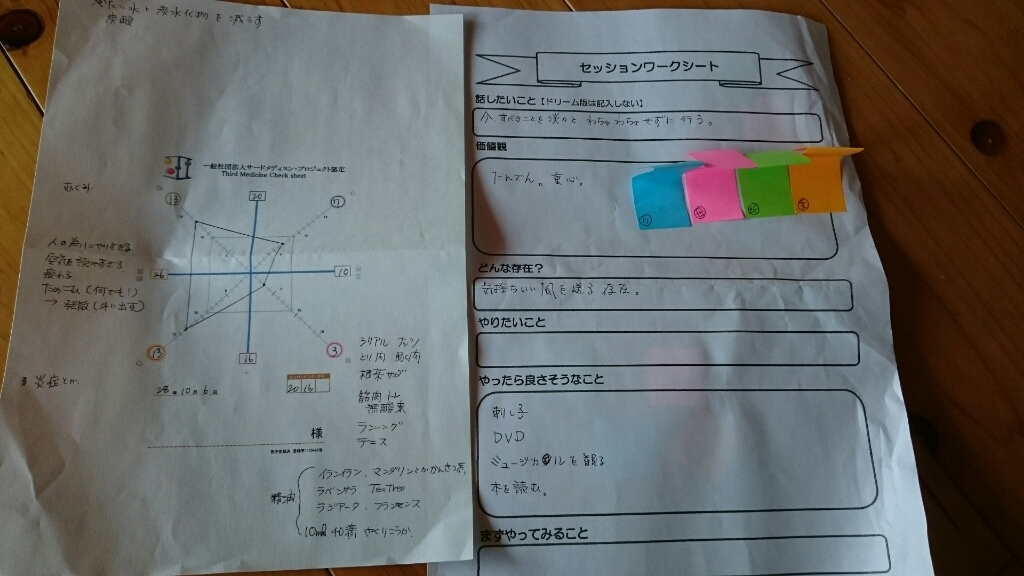 炭水化物を減らす
炭酸
一般社団法人サードメディスン・プロジェクト認定
Third Medicine Check sheet
20
13
7
むくみ
人の為にやりすぎる
空気を読みすぎる
疲れる
ためこむ(何でも!)
→ 発散(外に出す)
26
10
13
16
3
炎症とか
28年10月6日
20 16
様
シリアル
とり肉
根菜
筋肉トレ
無酸素
ランニング
テニス
精油
イランイラン、マンダリンとか
ラベンサラ TeaTree
フランキンセンス
10ml 40滴
セッションワークシート
話したいこと【ドリーム版は記入しない】
今すべきことを淡々と わちゃわちゃせずに行う。
価値観
たんでん。重心。
どんな存在?
気持ちいい風を送る存在。
やりたいこと
やったら良さそうなこと
刺し子
DVD
ミュージカルを観る
本を読む。
まずやってみること